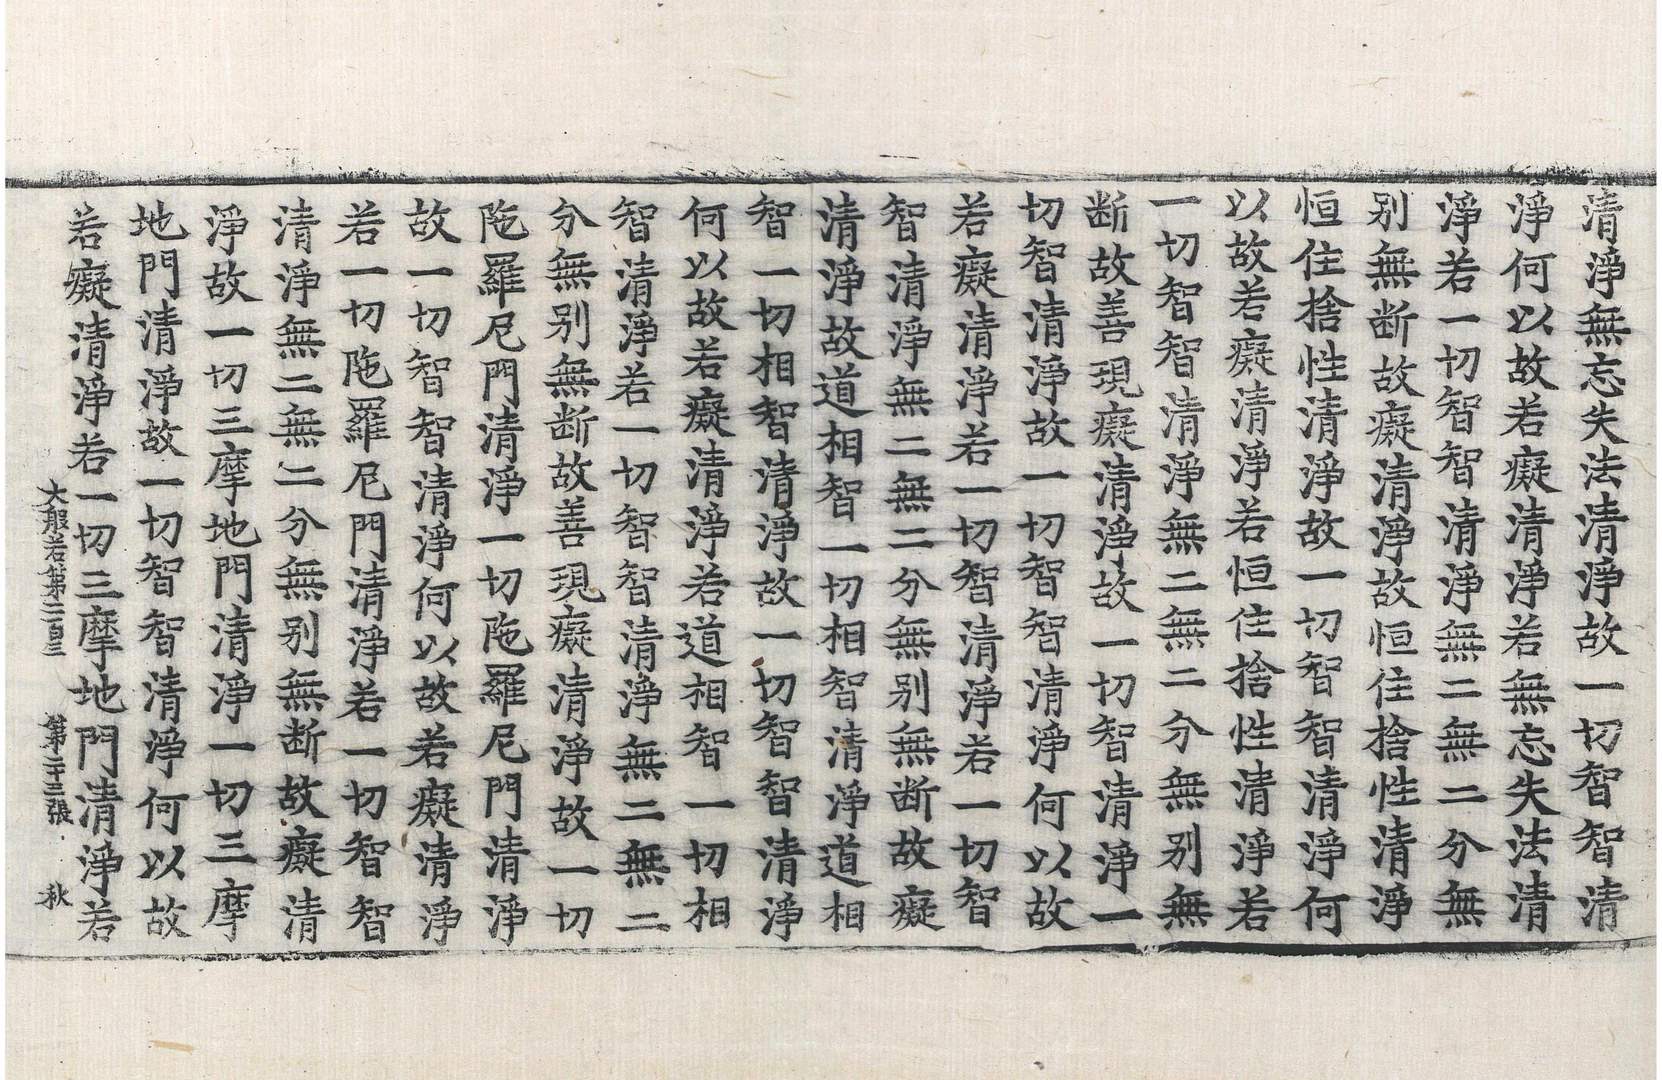 清淨無忘失法清淨故一切智智清
淨何以故若癡清淨若無忘失法清
淨若一切智智清淨無二無二分無
别無断故癡清淨故恒住捨性清淨
恒住捨性清淨故一切智智清淨何
以故若癡清淨若恒住捨性清淨若
一切智智清淨無二無二分無别無
断故善現癡清淨故一切智清淨一
切智清淨故一切智智清淨何以故
若癡清淨若一切智清淨若一切智
智清淨無二無二分無别無断故癡
清淨故道相智一切相智清淨道相
智一切相智清淨故一切智智清淨
何以故若癡清淨若道相智一切相
智清淨若一切智智清淨無二無二
分無别無断故善現癡清淨故一切
陁羅尼門清淨一切陁羅尼門清淨
故一切智智清淨何以故若癡清淨
若一切陁羅尼門清淨若一切智智
清淨無二無二分無别無断故癡清
淨故一切三摩地門清淨一切三摩
地門清淨故一切智智清淨何以故
若癡清淨若一切三摩地門清淨若
大般若第二百三 第二十三張 秋